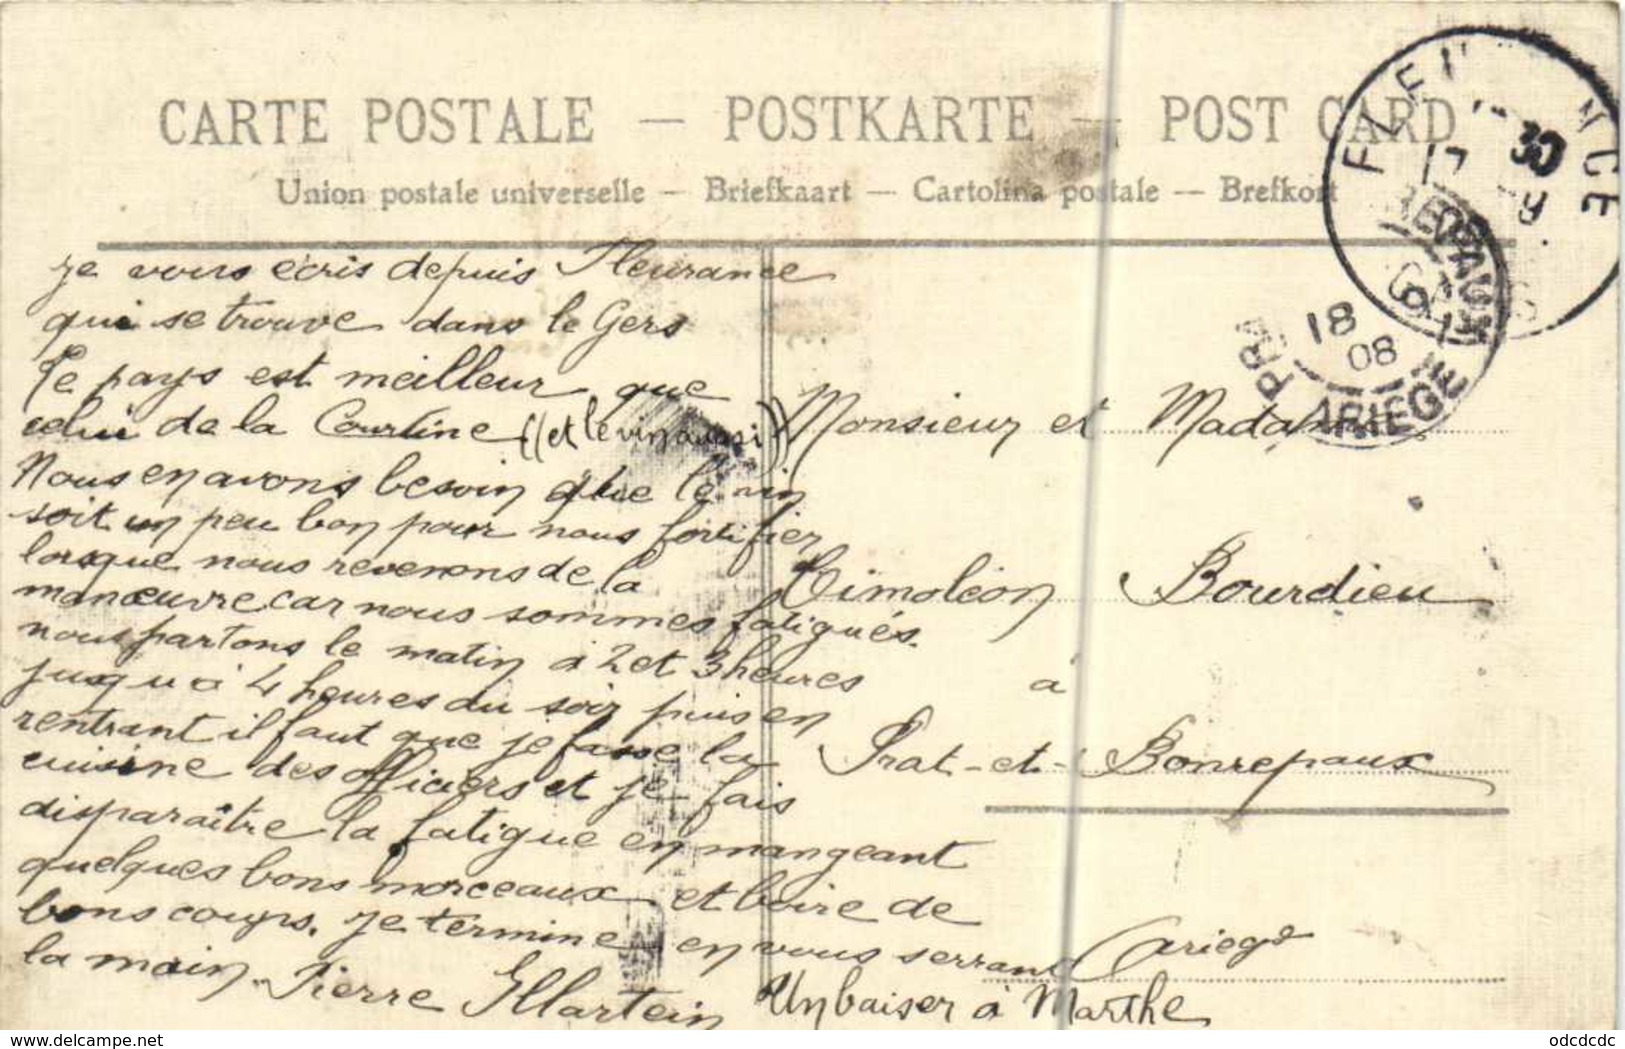 CARTE POSTALE — POSTKARTE — POST CARD
Union postale universelle — Briefkaart — Cartolina postale — Brefkort
je vous écris depuis Fleurance
qui se trouve dans le Gers
Le pays est meilleur que
celui de la Courtine ((et le vin aussi))
Nous en avons besoin que le vin
soit un peu bon pour nous fortifier
lorsque nous revenons de la
manœuvre car nous sommes fatigués.
nous partons le matin à 2 et 3 heures
jusqu'à 4 heures du soir puis en
rentrant il faut que je fasse la
cuisine des officiers et je fais
disparaître la fatigue en mangeant
quelques bons morceaux et boire de
bons coups. je termine en vous serrant
la main. Pierre Illartein
Un baiser à Marthe
Monsieur et Madame
Timoléon Bourdieu
à
Prat-et-Bonrepaux
Ariège
17 30
9
18
08
ARIEGE
odcdcdc